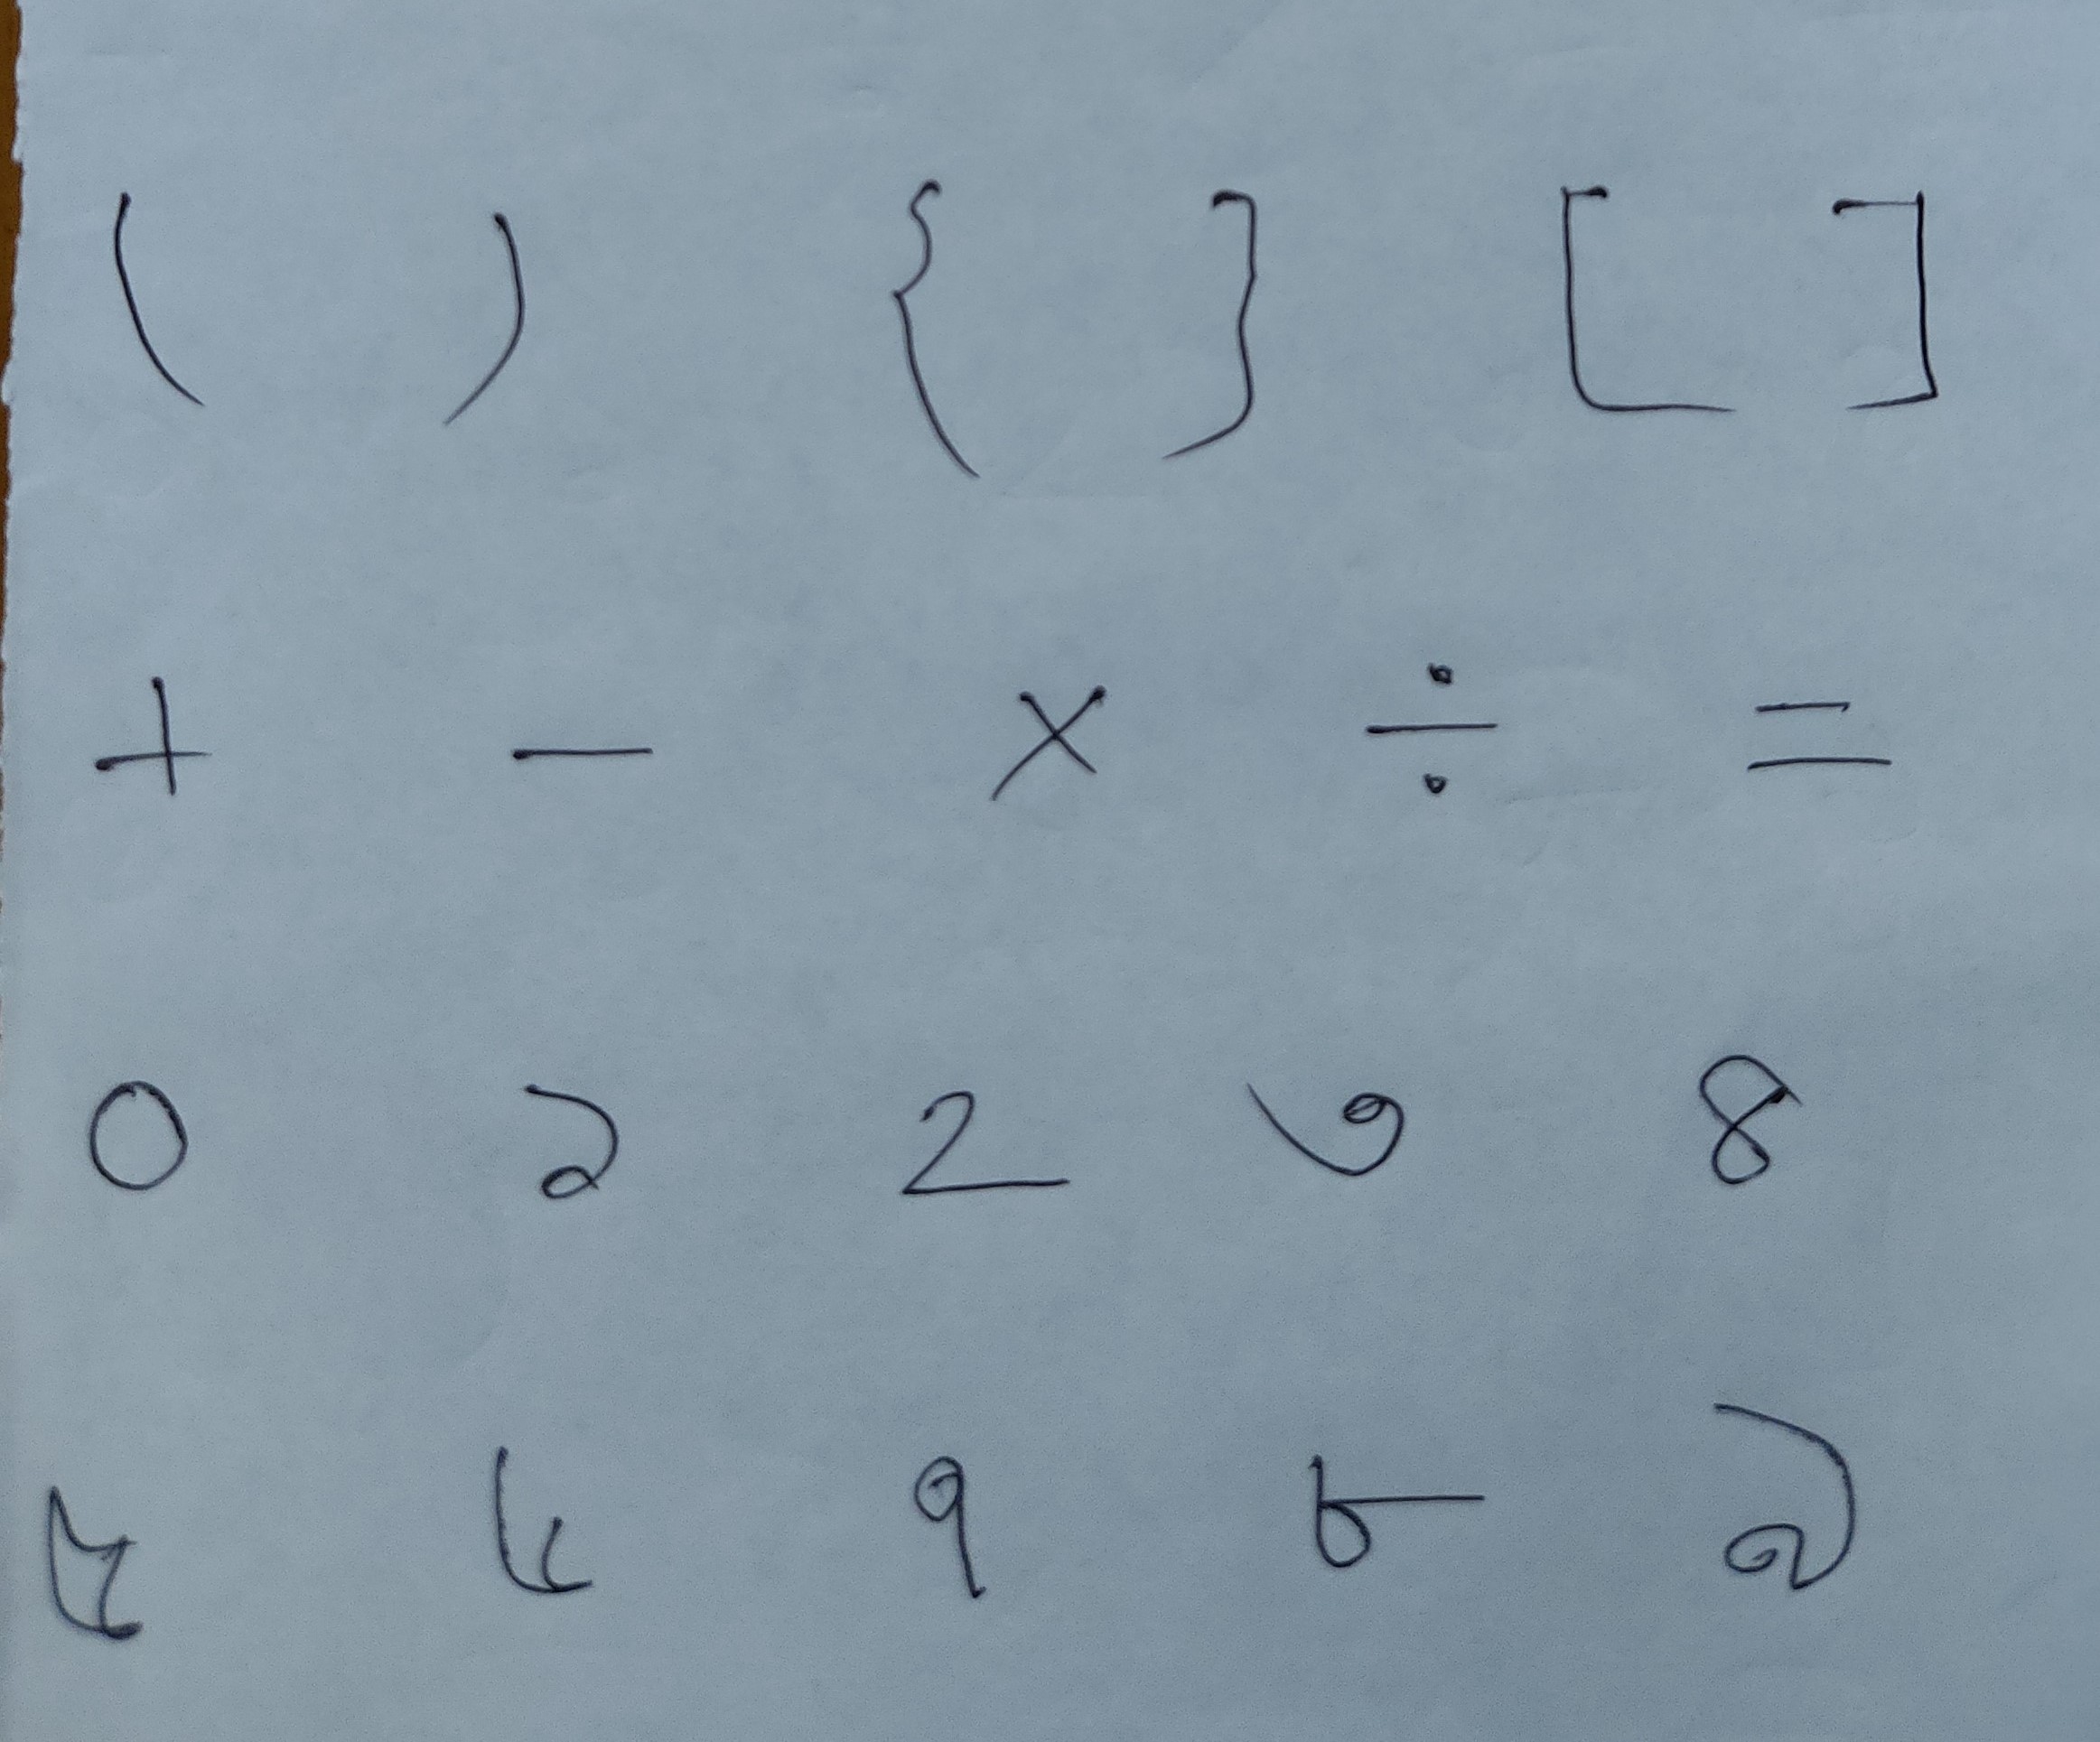 ( ) { } [ ]
+ - × ÷ =
০ ১ ২ ৩ ৪
৫ ৬ ৭ ৮ ৯